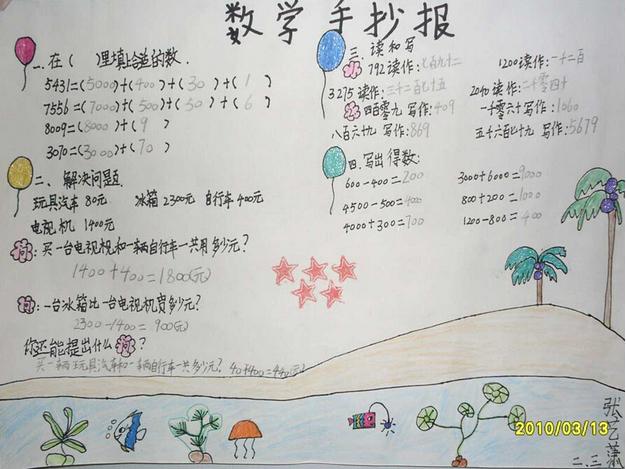 数学手抄报
一.在( )里填上合适的数.
5431=(5000)+(400)+(30)+(1)
7556=(7000)+(500)+(50)+(6)
8009=(8000)+(9)
3070=(3000)+(70)
二、解决问题.
玩具汽车 80元 冰箱 2300元 自行车 400元
电视机 1400元
问:买一台电视机和一辆自行车一共用多少元?
1400+400=1800(元)
问:一台冰箱比一台电视机贵多少元?
2300-1400=900(元)
你还能提出什么问?
买一辆玩具汽车和一辆自行车一共多少元?
三 读和写
792读作:七百九十二 1200读作:一千二百
3275读作:三千二百七十五 2040读作:二千零四十
四百零九 写作:409 一千零六十 写作:1060
八百六十九 写作:869 五千六百七十九 写作:5679
四.写出得数:
600-400=200 3000+6000=9000
4500-500=4000 800+200=1000
4000+300=700 1200-800=400
2010/03/13
二.三